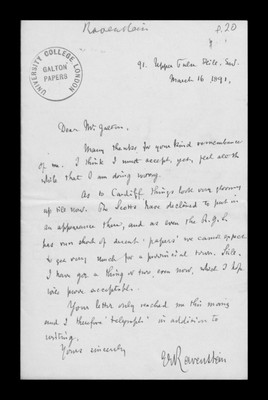 Ravenstein
p.20
UNIVERSITY COLLEGE LONDON
GALTON PAPERS
91, Upper Tulse Hill, S.W.
March 16, 1891,
Dear Mr Galton.
Many thanks for your kind remembrance
of me. I think I must accept, yet feel all the
while that I am doing wrong.
As to Cardiff, things look very gloomy
up till now. The Scotts have declined to put in
an appearance there, and as even the R.G.S.
has run short of decent 'papers' we cannot expect
to get very much for a provincial town. Still
I have got a thing or two, even now, which I hope
will prove acceptable.
Your letter only reached me this morning
and I therefore 'telegraph' in addition to
writing.
Yours sincerely
EGRavenstein